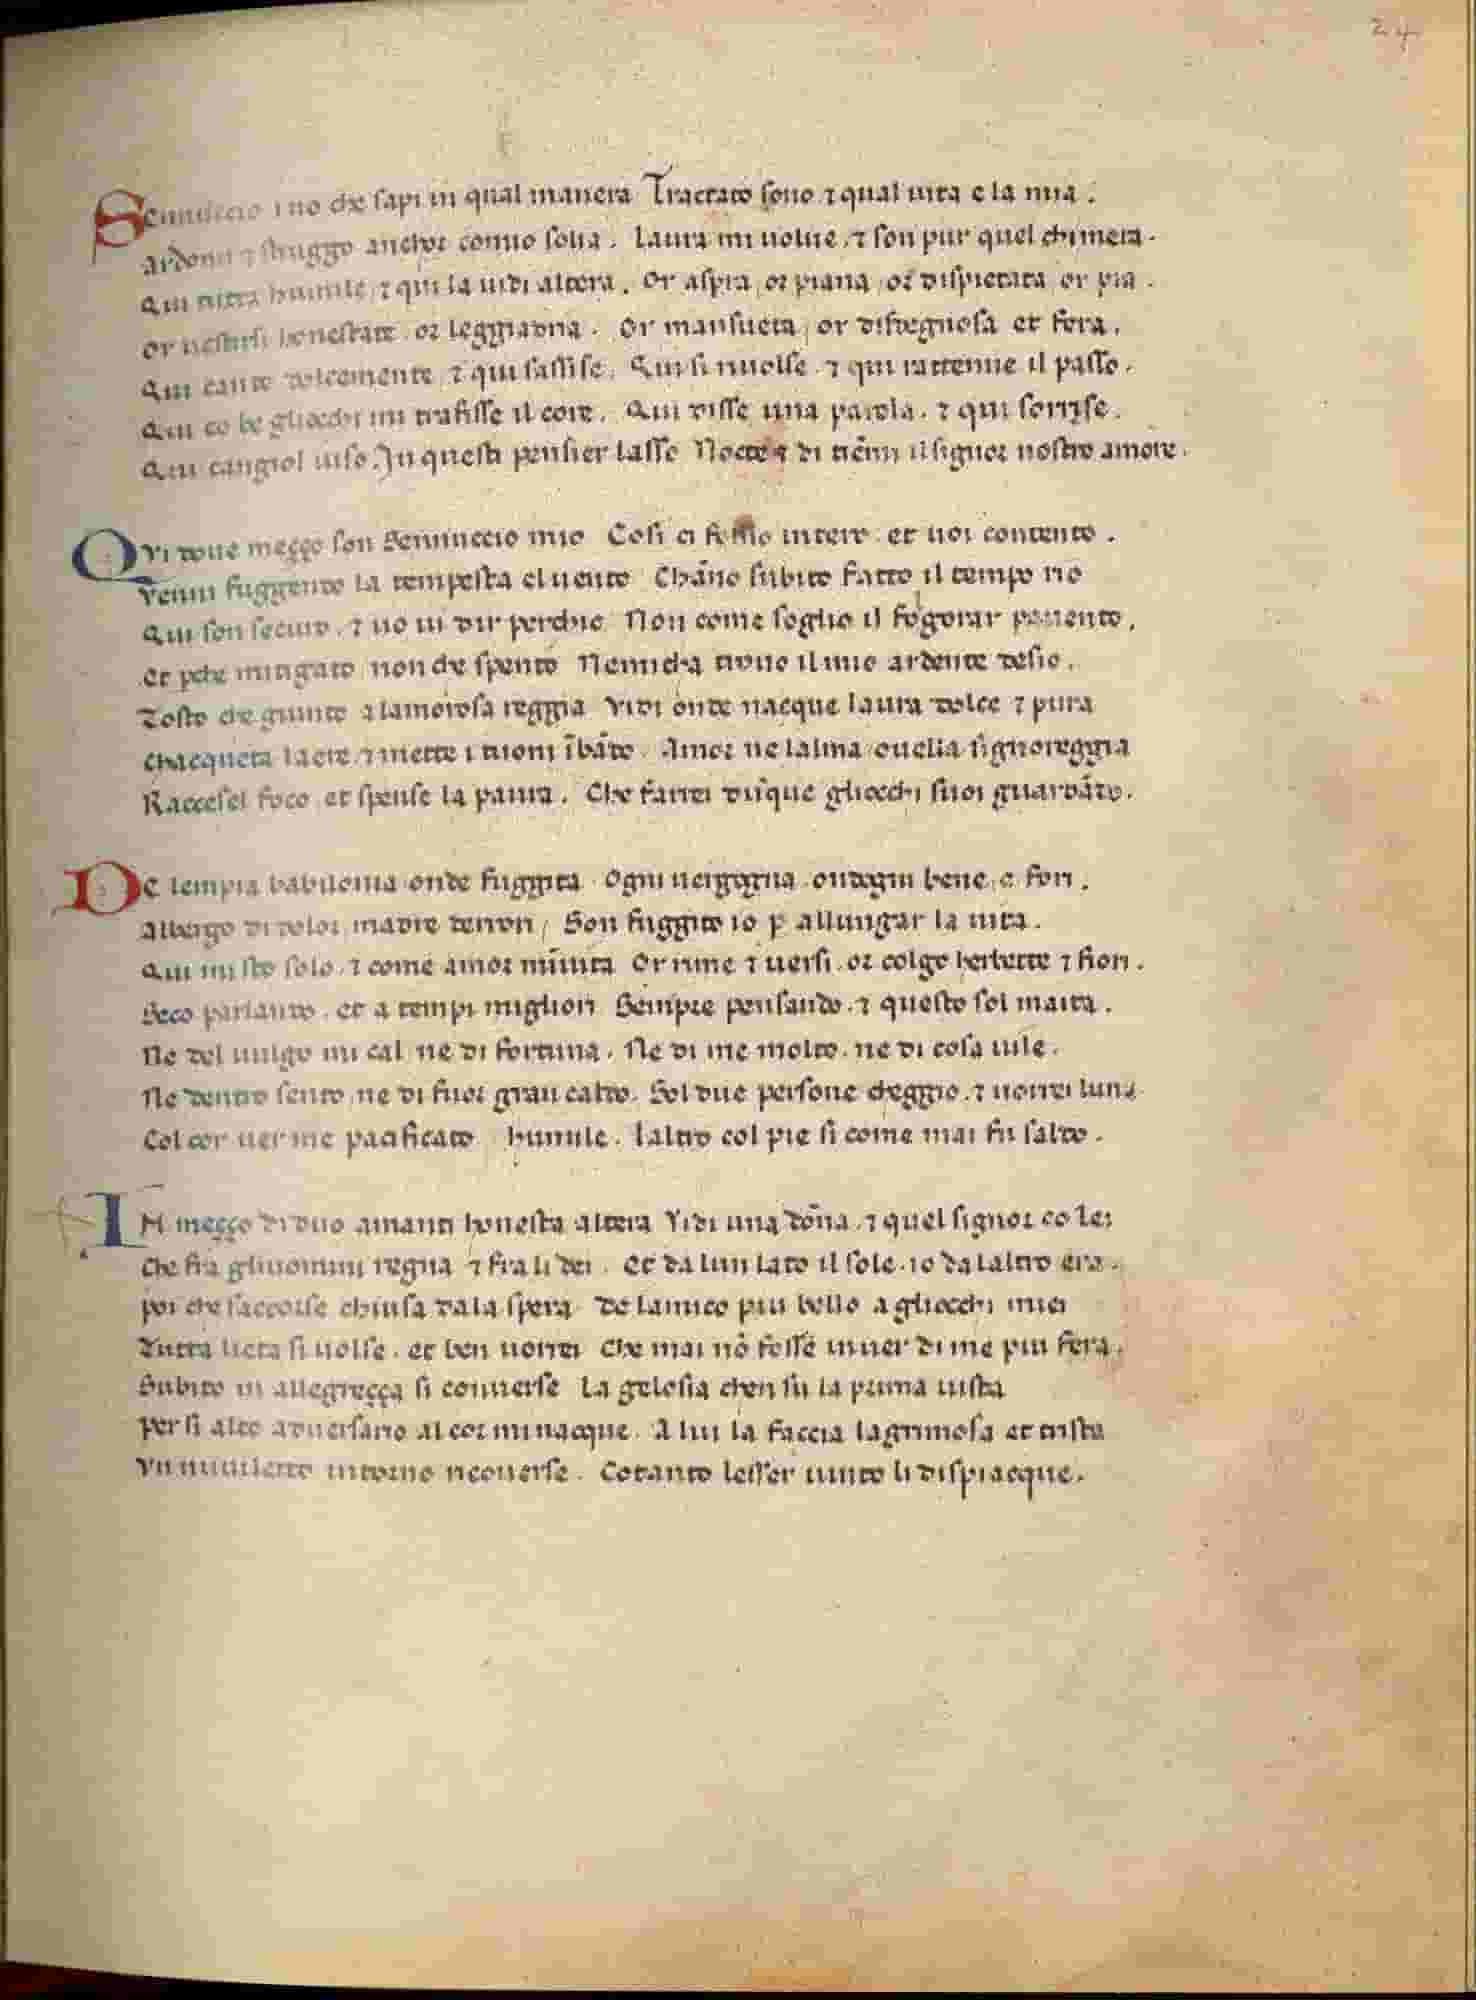 24
Sennuccio i uo che sapi in qual manera Tractato sono ⁊ qual uita e la mia .
Ardomi ⁊ struggo anchor comio solia . Laura mi uolue . ⁊ son pur quel chimera .
Qui tutta humile . ⁊ qui la uidi altera . Or aspra or piana . or dispietata or pia .
Or uestirsi honestate . or leggiadria . Or mansueta , or disdegnosa et fera .
Qui canto dolcemente . ⁊ qui sassise . Qui si riuolse . ⁊ qui rattenne il passo .
Qui co be gliocchi mi trafisse il core . Qui disse una parola . ⁊ qui sorrise .
Qui cangiol uiso . In questi pensier lasso Nocte ⁊ di tiē̄mi il signor nostro amore .
QVi doue meçço son Sennuccio mio Cosi ci fossio intero . et uoi contento .
Venni fuggendo la tempesta el uento Chāno subito fatto il tempo rio
Qui son securo . ⁊ uo ui dir perchio Non come soglio il folgorar pauento .
Et p̱che mitigato non che spento Nemicha trouo il mio ardente desio .
Tosto che giunto alamorosa reggia Vidi onde nacque laura dolce ⁊ pura
Chacqueta laere . ⁊ mette i tuoni ībādo . Amor ne lalma ouella signoreggia
Raccesel foco et spense la paura . Che farrei dūque gliocchi suoi guardādo .
DE lempia babilonia onde fuggita . Ogni uergogna . ondogni bene e fori .
Albergo di dolor madre derrori / Son fuggito io ꝑ allungar la uita .
Qui mi sto solo . ⁊ come amor mīuita Or rime ⁊ uersi . or colgo herbette ⁊ fiori .
Seco parlando . et a tempi migliori Sempre pensando . ⁊ questo sol maita .
Ne del uulgo mi cal ne di fortuna . Ne di me molto . ne di cosa uile .
Ne dentro sento ne di fuor gran caldo . Sol due persone cheggio . ⁊ uorrei luna
Col cor uer me pacificato humile . Laltro col pie si come mai fu saldo .
IN meçço di duo amanti honesta altera Vidi una dōna . ⁊ quel signor co lei
Che fra gliuomini regna ⁊ fra li dei . Et da lun lato il sole . io da laltro era .
Poi che saccorse chiusa da la spera De lamico piu bello a gliocchi miei
Tutta lieta si uolse . et ben uorrei Che mai nō fosse inuer di me piu fera .
Subito in allegreçça si conuerse La gelosia chen su la prima uista
Per si alto aduersario al cor mi nacque . A lui la faccia lagrimosa et trista
Vn nuuiletto intorno ricouerse . Cotanto lesser uinto li dispiacque .